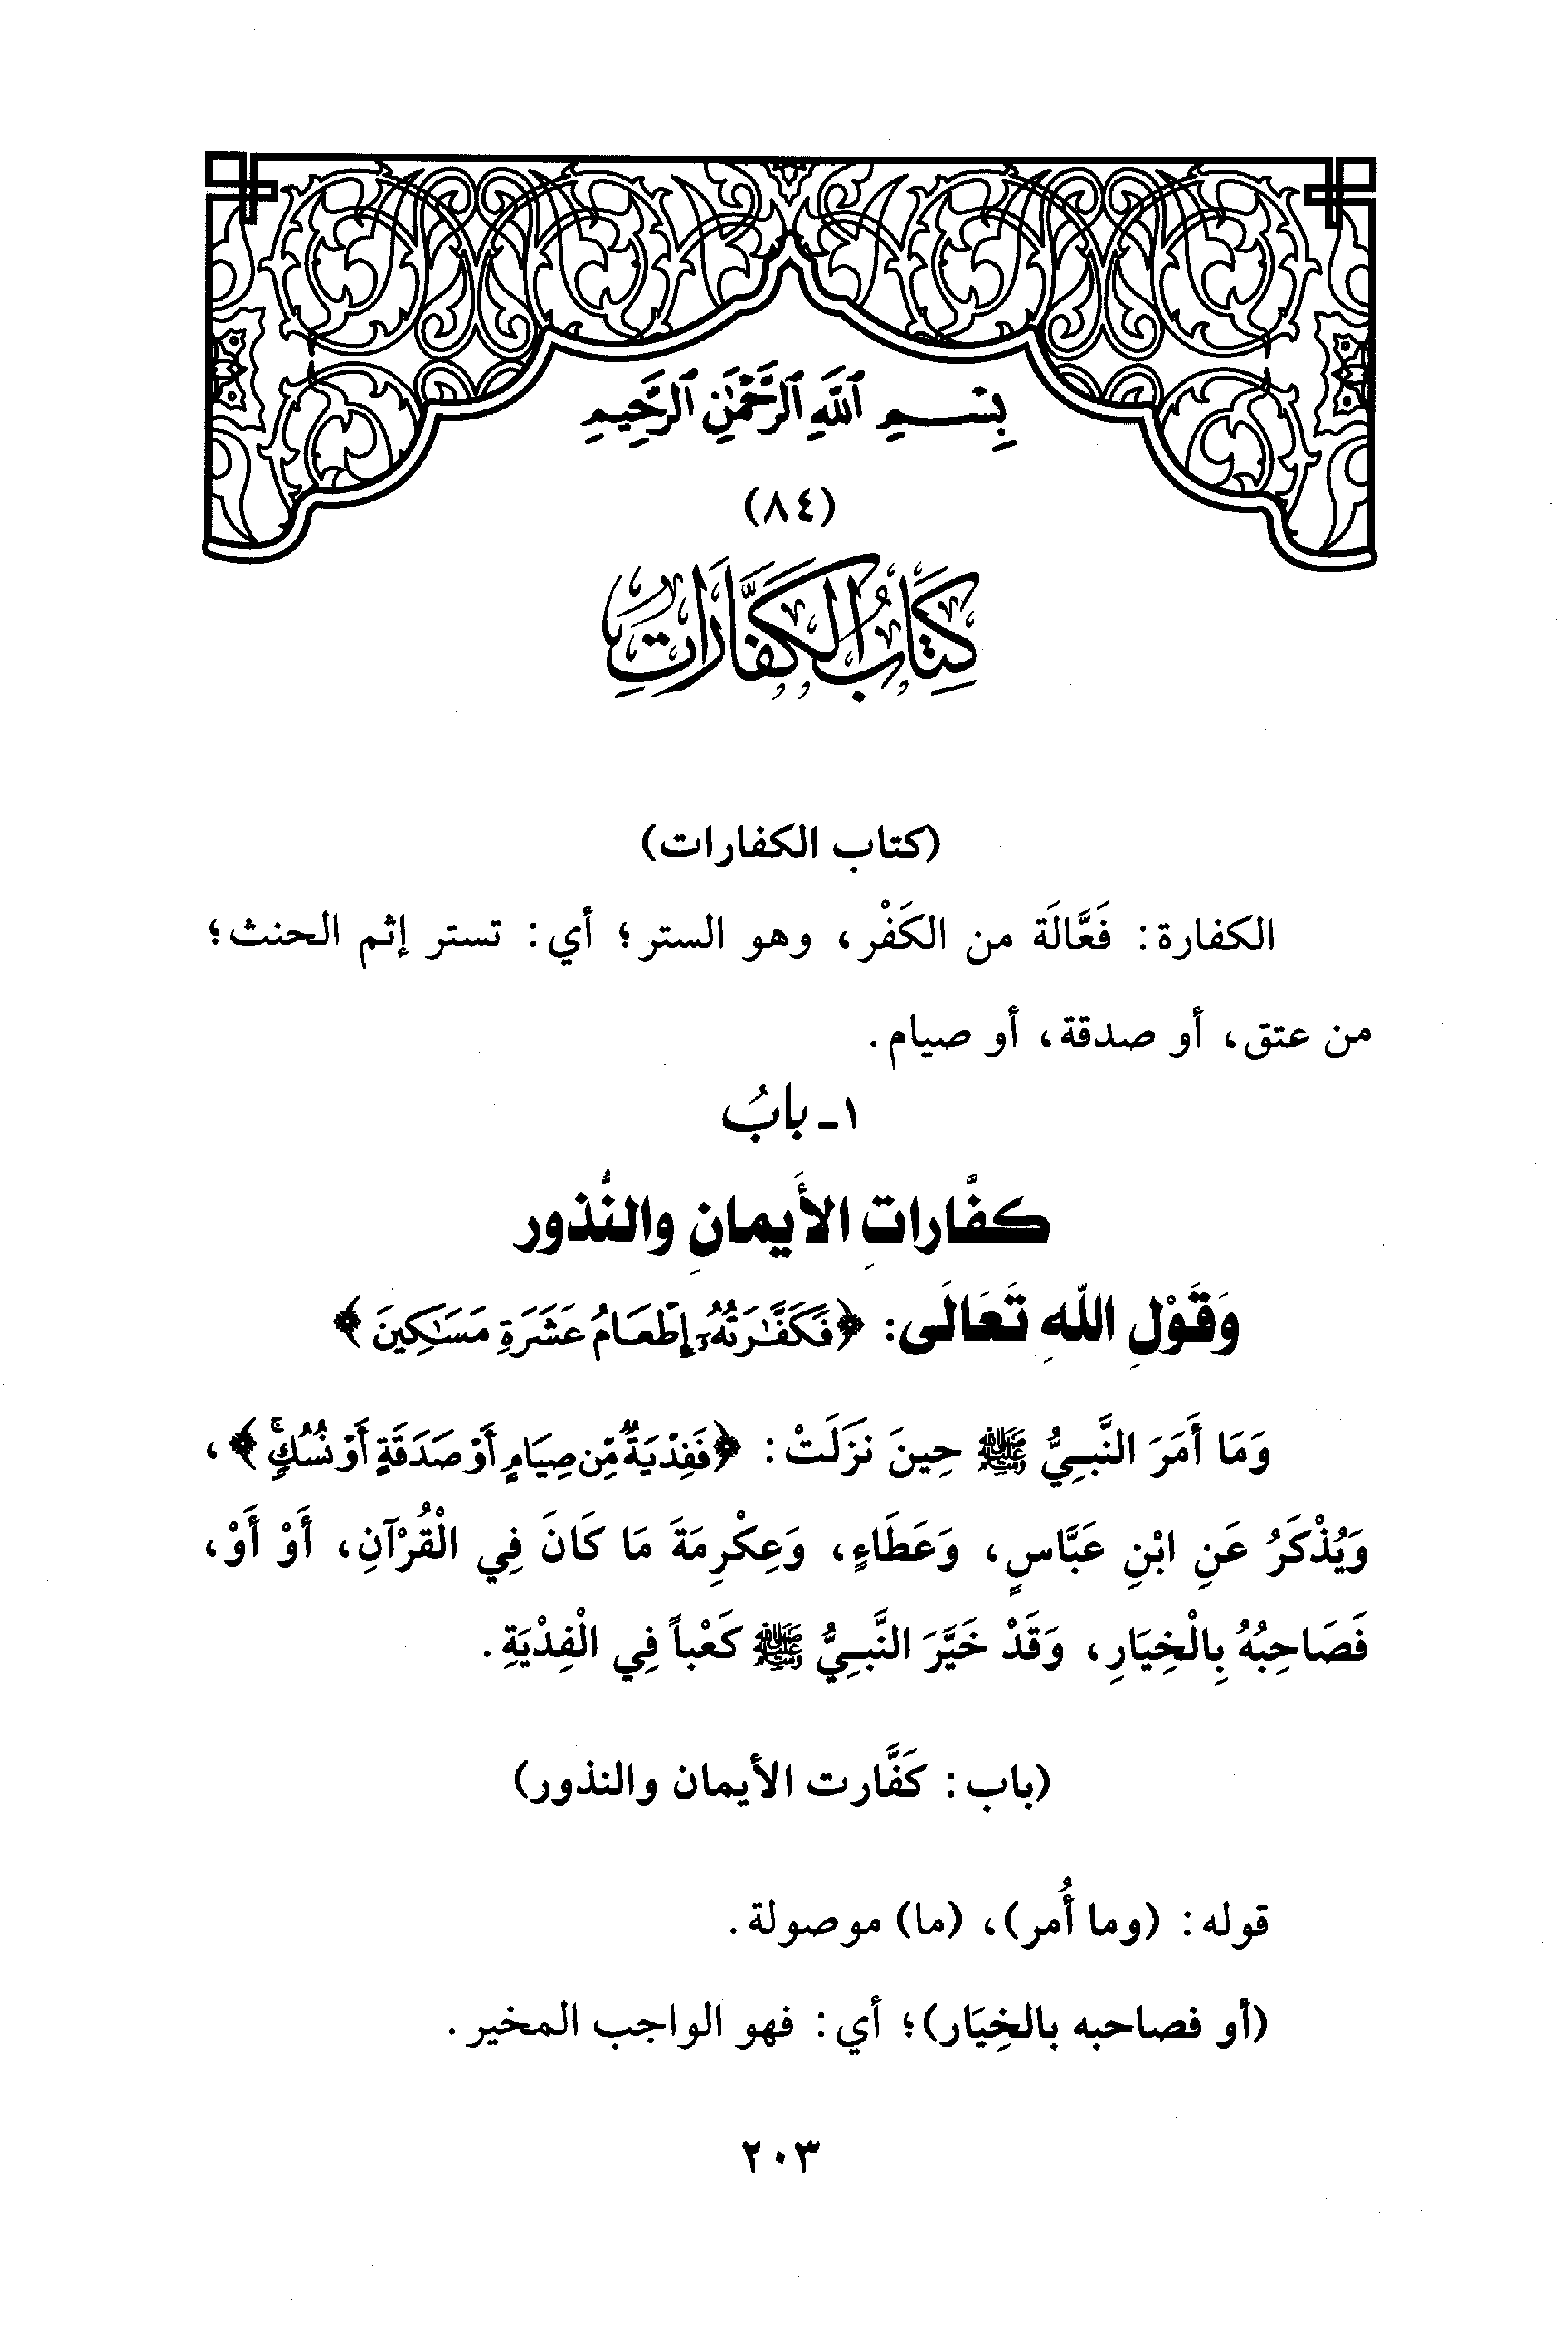 بِسْمِ ٱللَّهِ ٱلرَّحْمَٰنِ ٱلرَّحِيمِ
(٨٤)
كِتَابُ الكَفَّارَاتِ
(كتاب الكفارات)
الكفارة: فَعَّالَة من الكَفْر، وهو الستر؛ أي: تستر إثم الحنث؛
من عتق، أو صدقة، أو صيام.
١ـ بابُ
كفَّاراتِ الأَيمانِ والنُّذور
وَقَوْلِ اللّهِ تَعَالَى: ﴿فَكَفَّٰرَتُهُۥٓ إِطْعَامُ عَشَرَةِ مَسَٰكِينَ﴾
وَمَا أَمَرَ النَّبِيُّ ﷺ حِينَ نَزَلَتْ: ﴿فَفِدْيَةٌ مِّن صِيَامٍ أَوْ صَدَقَةٍ أَوْ نُسُكٍۚ﴾،
وَيُذْكَرُ عَنِ ابْنِ عَبَّاسٍ، وَعَطَاءٍ، وَعِكْرِمَةَ مَا كَانَ فِي الْقُرْآنِ، أَوْ أَوْ،
فَصَاحِبُهُ بِالْخِيَارِ، وَقَدْ خَيَّرَ النَّبِيُّ ﷺ كَعْباً فِي الْفِدْيَةِ.
(باب: كَفَّارت الأيمان والنذور)
قوله: (وما أُمر)، (ما) موصولة.
(أو فصاحبه بالخِيَار)؛ أي: فهو الواجب المخير.
٢٠٣